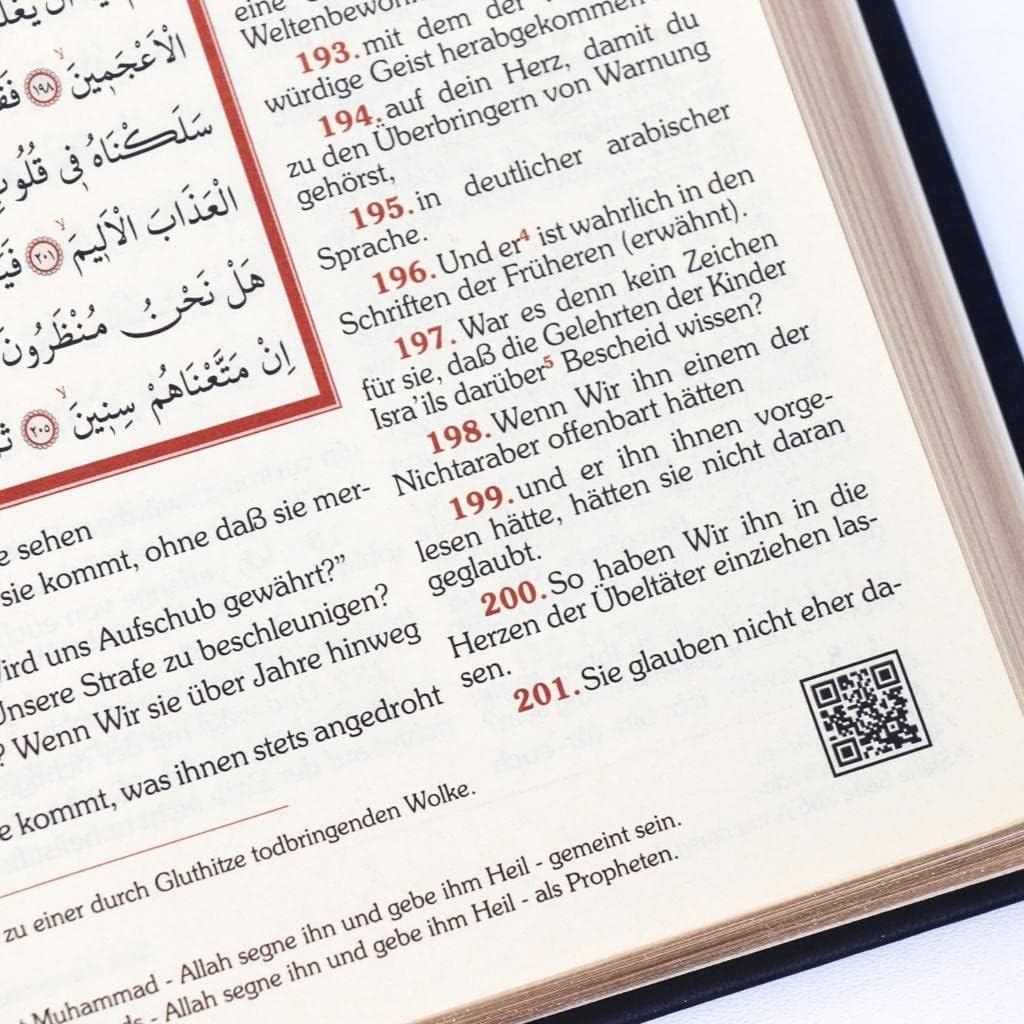 الْاَعْجَمٖينَ ۙ ﴿١٩٨﴾
سَلَكْنَاهُ فٖى
الْعَذَابَ الْاَلٖيمَ ۙ ﴿٢٠١﴾
هَلْ نَحْنُ مُنْظَرُونَ
اِنْ مَتَّعْنَاهُمْ سِنٖينَ ۙ ﴿٢٠٥﴾
eine
193. mit dem der
würdige Geist herabgekommen
194. auf dein Herz, damit du
zu den Überbringern von Warnung
gehörst,
195. in deutlicher arabischer
Sprache.
196. Und er⁴ ist wahrlich in den
Schriften der Früheren (erwähnt).
197. War es denn kein Zeichen
für sie, daß die Gelehrten der Kinder
Isra'ils darüber⁵ Bescheid wissen?
198. Wenn Wir ihn einem der
Nichtaraber offenbart hätten
199. und er ihn ihnen vorge-
lesen hätte, hätten sie nicht daran
geglaubt.
200. So haben Wir ihn in die
Herzen der Übeltäter einziehen las-
sen.
201. Sie glauben nicht eher da-
sehen
sie kommt, ohne daß sie mer-
uns Aufschub gewährt?”
Unsere Strafe zu beschleunigen?
? Wenn Wir sie über Jahre hinweg
kommt, was ihnen stets angedroht
zu einer durch Gluthitze todbringenden Wolke.
Muhammad - Allah segne ihn und gebe ihm Heil - gemeint sein.
- Allah segne ihn und gebe ihm Heil - als Propheten.